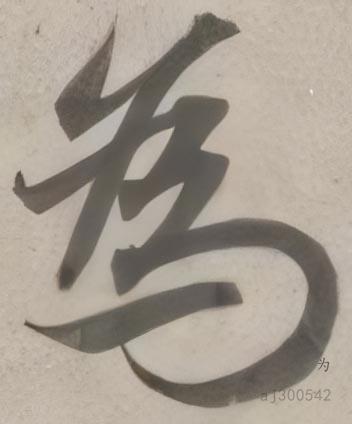 為
为
aj300542